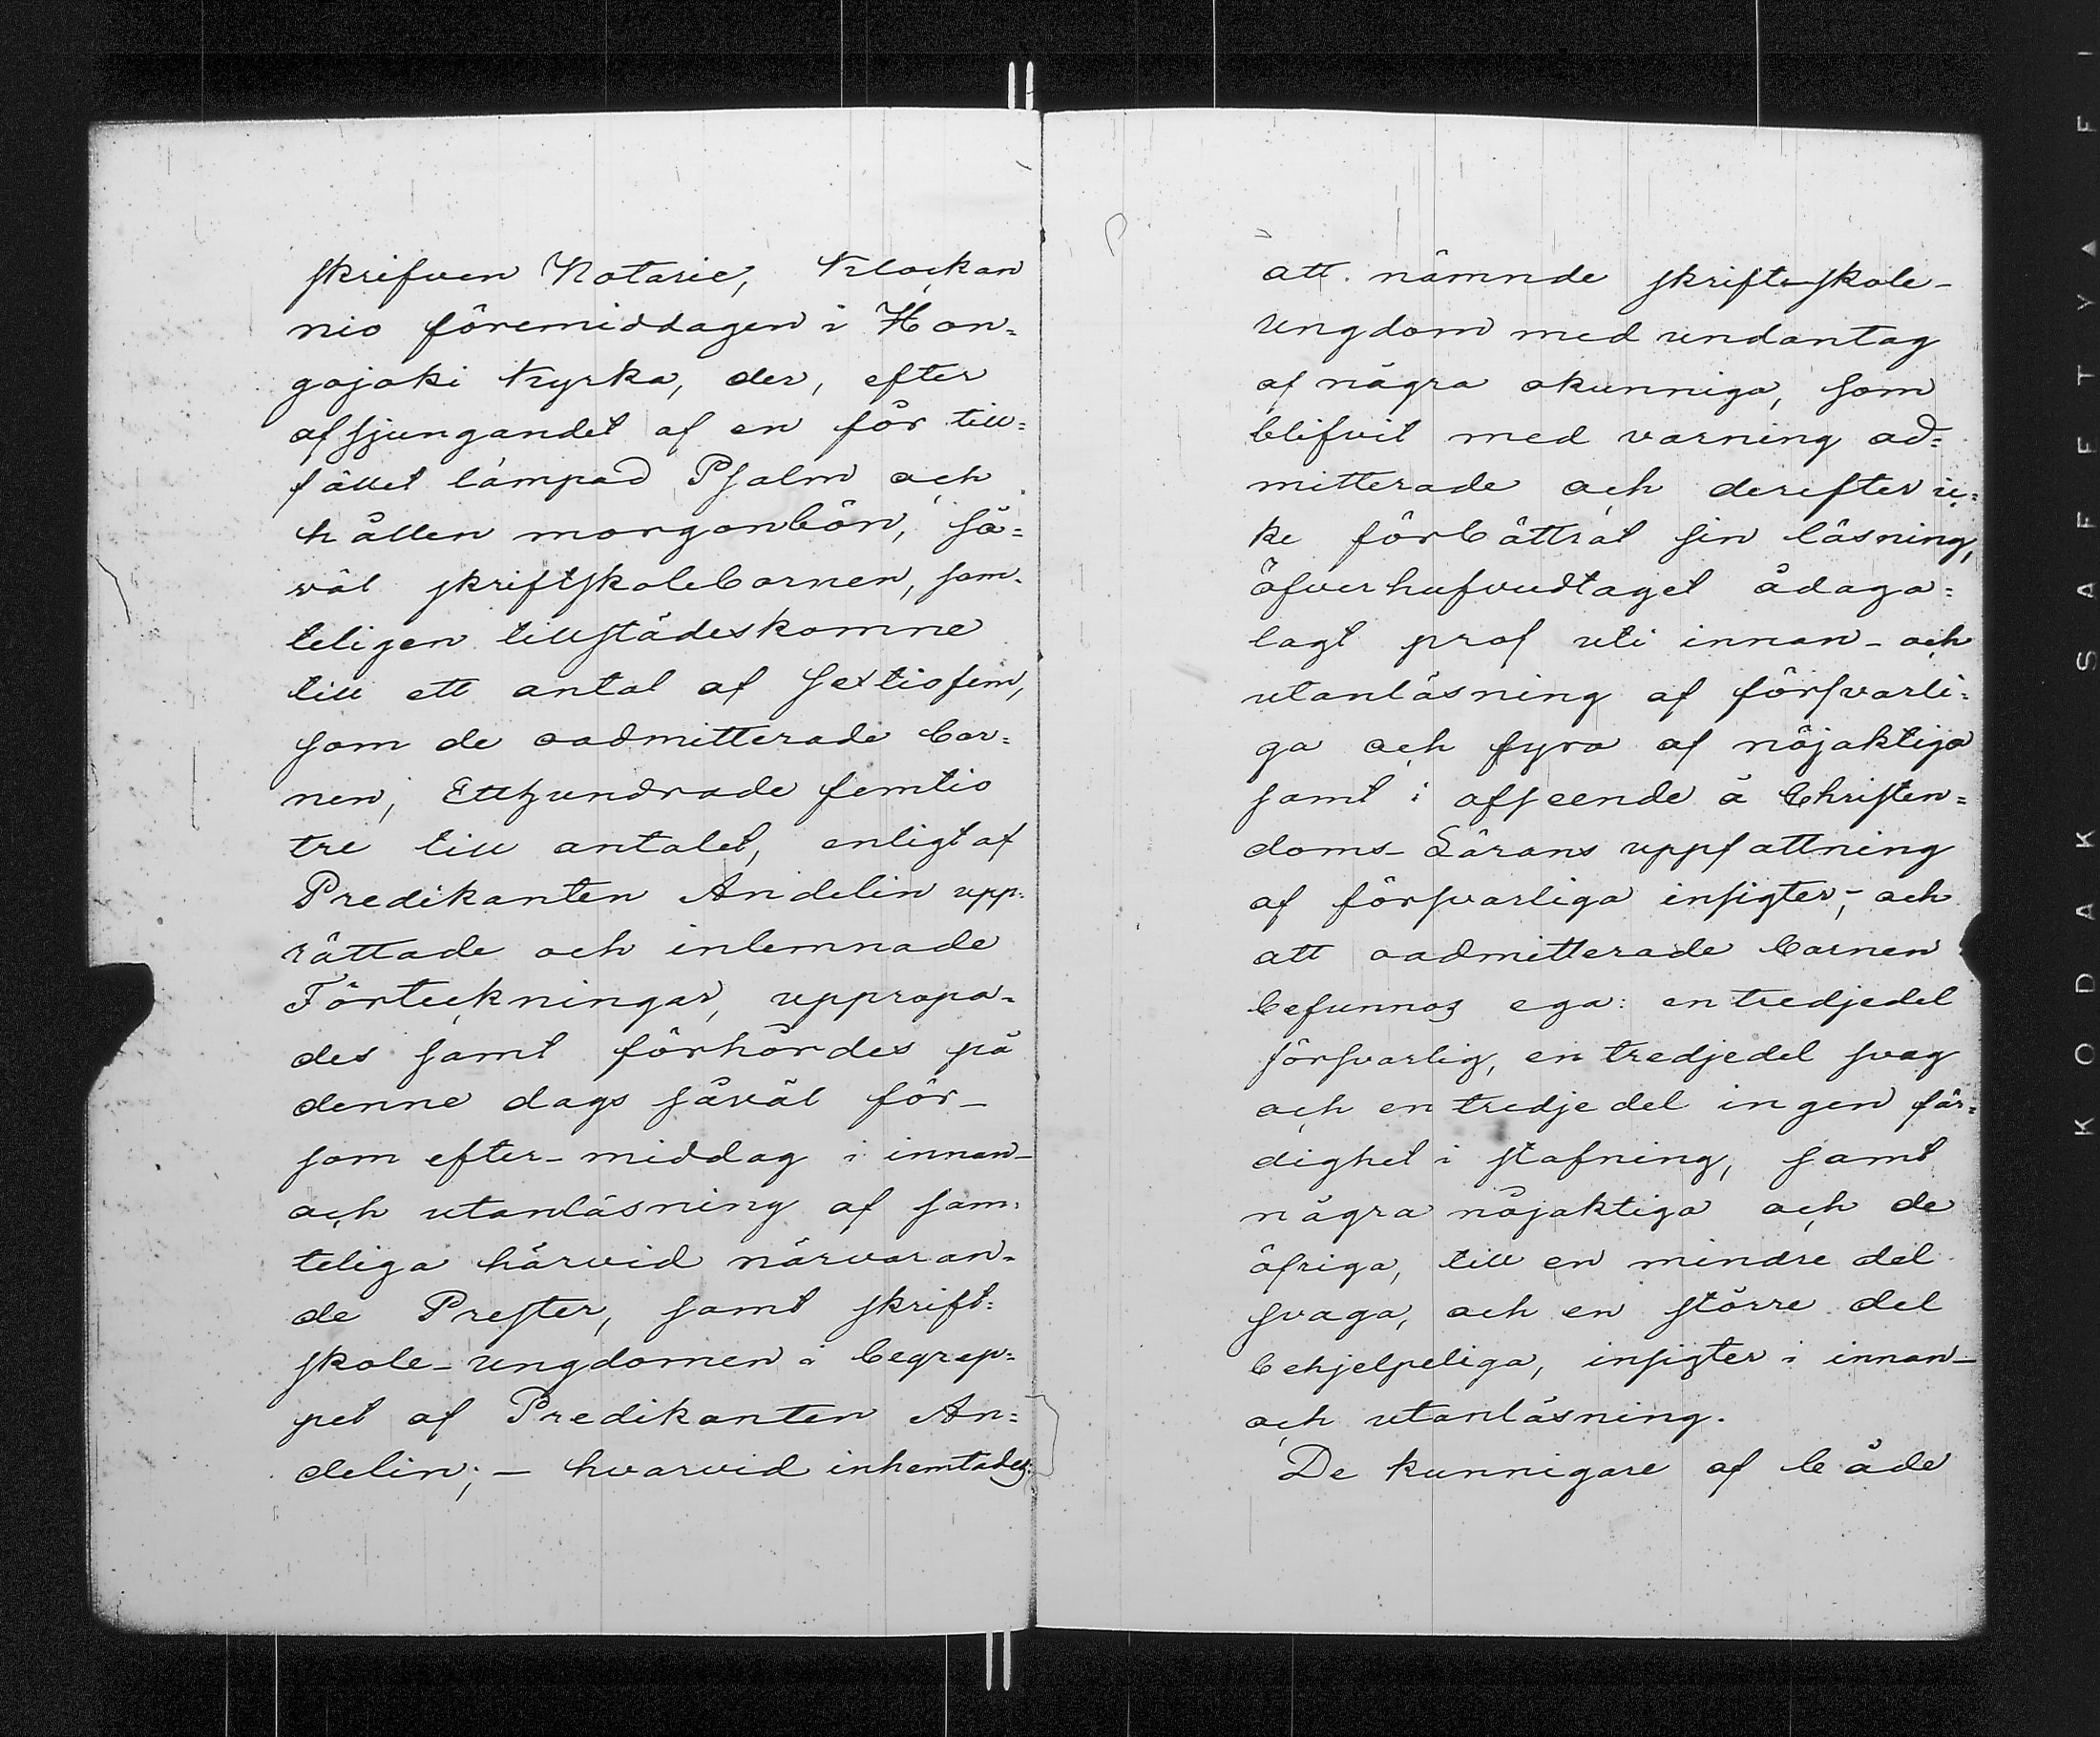 skrifven Notarie, Klockan
nio föremiddagen i Kan=
gajoki Kyrka, der, efter
afsjungandet af en för till=
fället lämpad Psalm och
hållen morgonbön, så=
väl skriftskolebarnen, sam-
teligen tillstädeskomne
till ett antal af Sextiofem,
som de oadmitterade bar=
nen, Etthundrade femtio
tre till antalet, enligt af
Predikanten Andelin upp-
rättade och inlemnade
Förteckningar, uppropa-
des samt förhördes på
denne dags såväl för-
som efter-middag i innan-
och utanläsning af sam-
teliga härvid närvaran-
de Prester, samt skrift=
skole-ungdomen i begrep=
pet af Predikanten An=
delin; - hvarvid inhemtades
att nämnde skriftskole-
ungdom med undantag
af några okunniga, som
blifvit med varning ad=
mitterade och derefter ic=
ke förbättrat sin läsning,
öfverhufvudtaget ådaga=
lagt prof uti innan- och
utanläsning af försvarli=
ga och fyra af nöjaktiga
samt i afseende å Christen=
doms-Lärans uppfattning
af försvarliga insigter; och
att oadmitterade barnen
befunnos ega: en tredjedel
försvarlig, en tredjedel svag
och en tredjedel ingen fär=
dighet i stafning, samt
några nöjaktiga och de
öfriga, till en mindre del
svaga, och en större del
behjelpeliga, insigter i innan-
och utanläsning.
De kunnigare af både
KODAK SAFETY FI